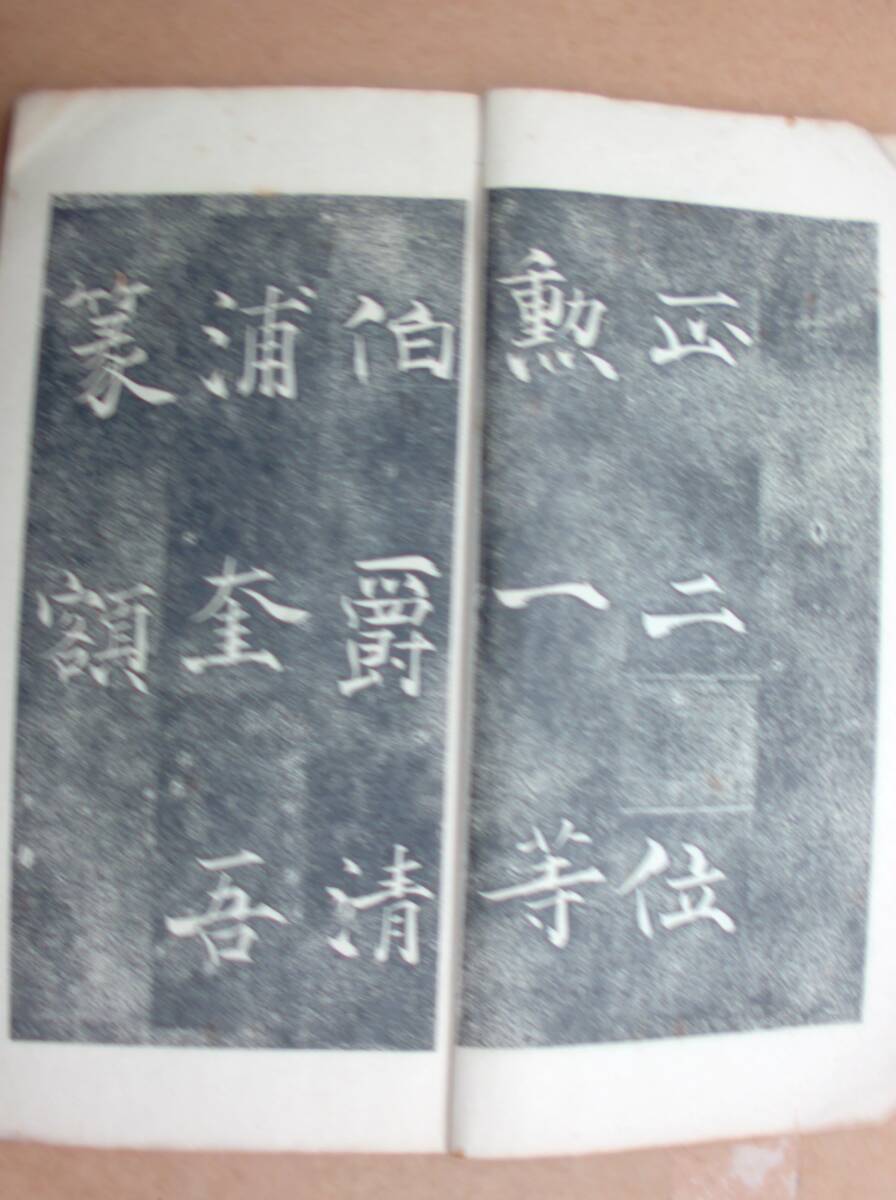 正二位
勲一等
伯爵清
浦奎吾
篆額